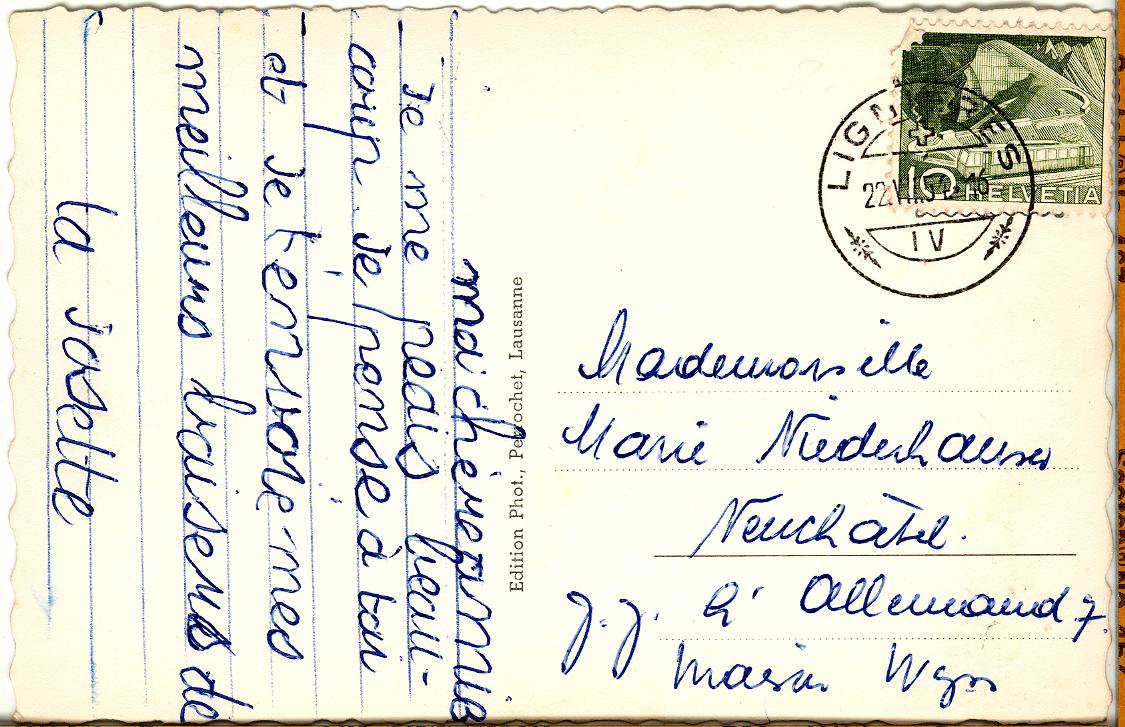 ma chère annie
Je me peais beau-
coup. Je pense à toi
et je t'envoie mes
meilleurs baisers de
ta Josette
Edition Phot., Perrochet, Lausanne
LIGNIERES
22.VII.5 -16
IV
10 HELVETIA
Mademoiselle
Marie Niederhauser
Neuchâtel.
J. J. Allemand 7.
Maison Wyss